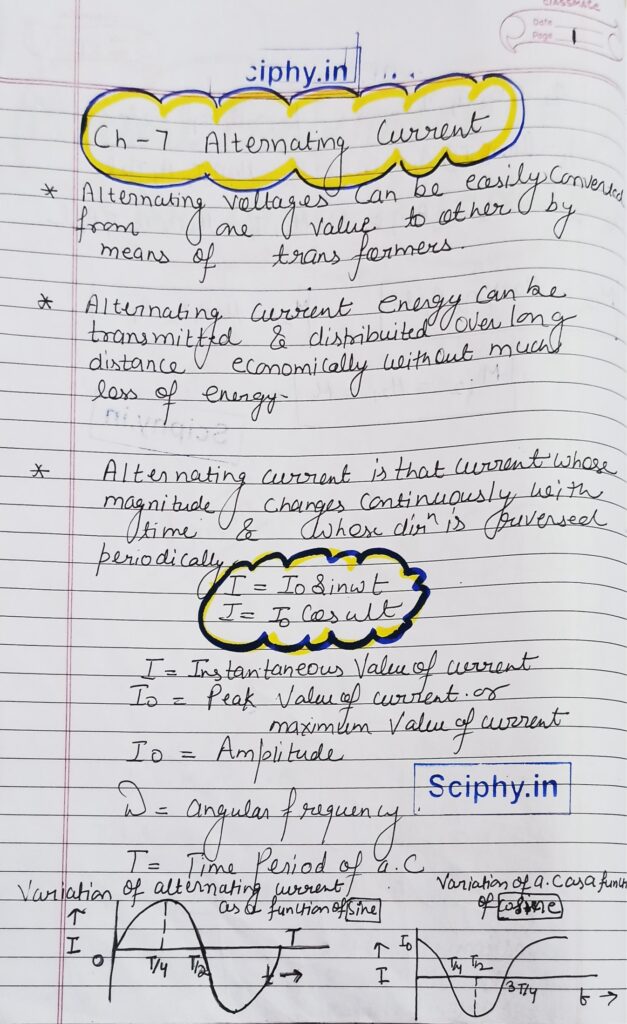 CLASSMATE
Date
Page 1
ciphy.in
Ch-7 Alternating Current
* Alternating voltages can be easily converted
from one value to other by
means of transformers.
* Alternating current energy can be
transmittd & distribuited over long
distance economically without much
loss of energy-
Sciphy.in
* Alternating current is that current whose
magnitude changes continuously with
time & whose dirⁿ is reversed
periodically
I = I₀ Sinωt
I = I₀ Cosωt
I = Instantaneous Value of current
I₀ = Peak Value of current or
maximum Value of current
I₀ = Amplitude
Sciphy.in
ω = angular frequency
T = Time Period of a.C
Variation of alternating current
as a function of sine
Variation of a.C as a func
of cosine
↑
I
O
T/4
T/2
T
t →
↑
I
I₀
T/4
T/2
3T/4
t →